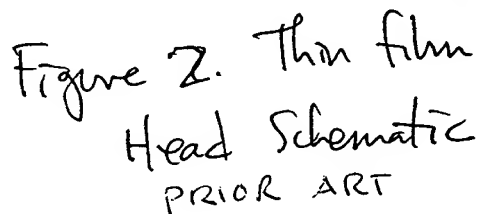 Figure 2. Thin film
Head Schematic
PRIOR ART